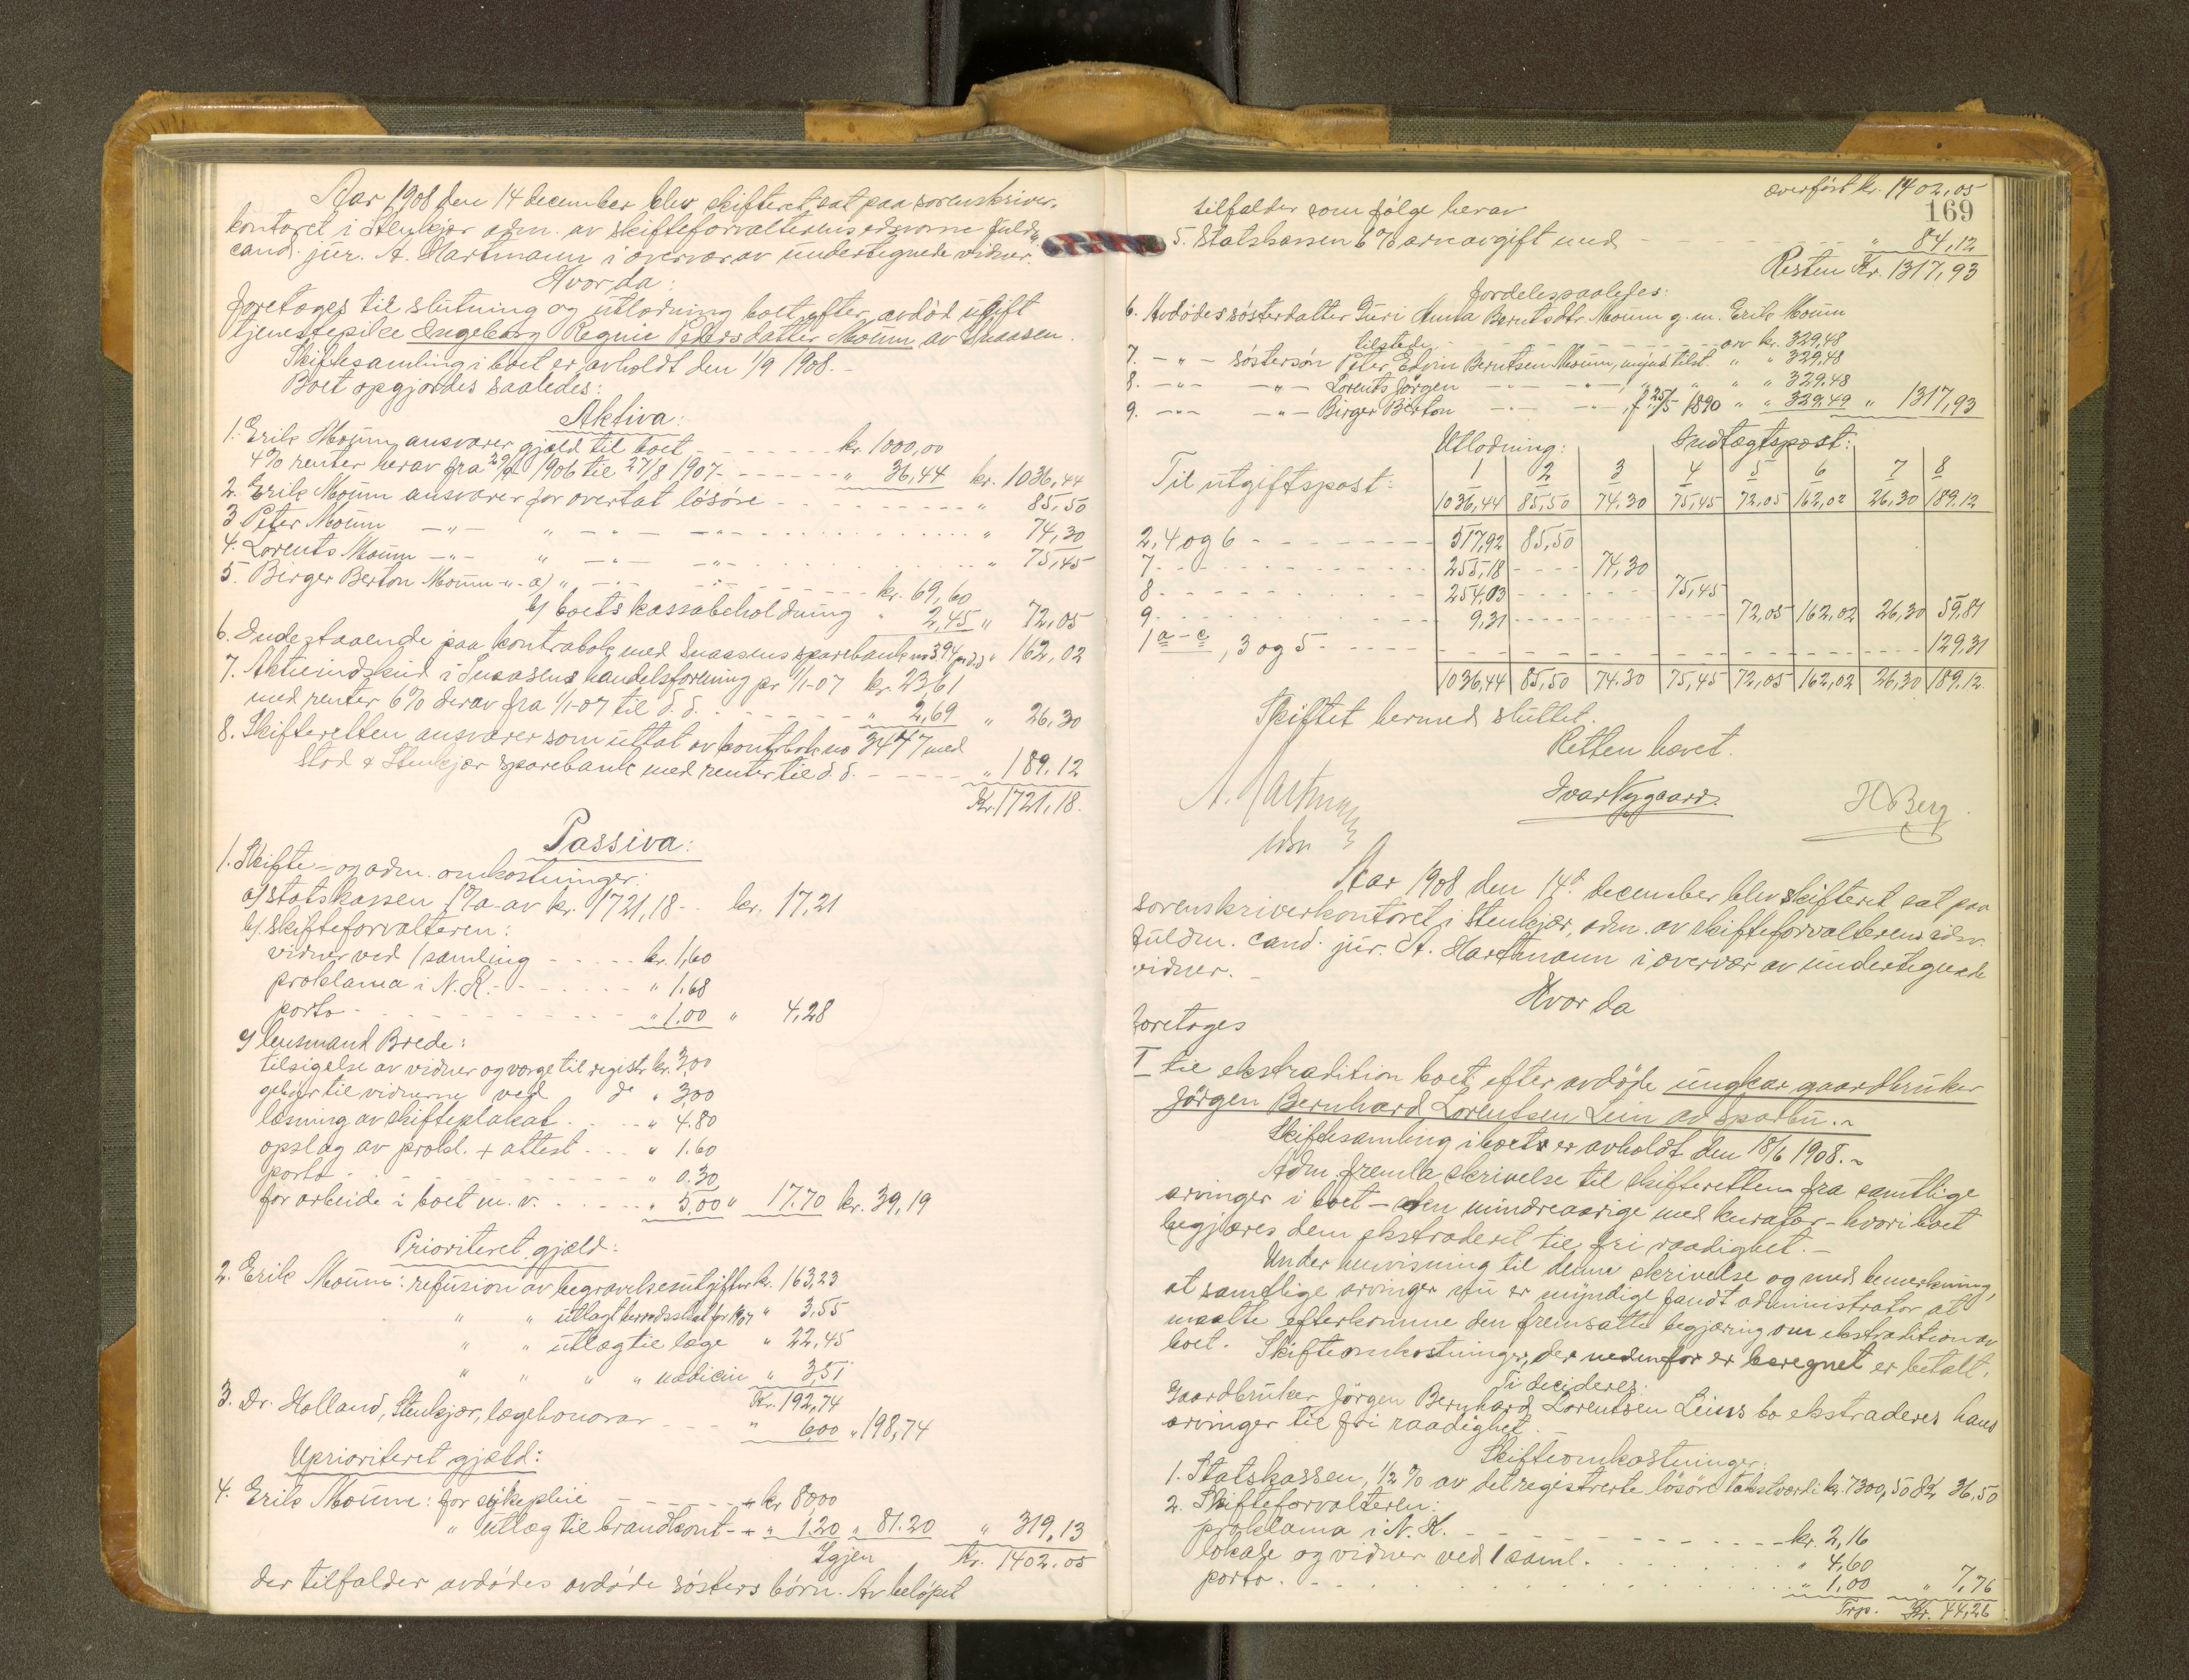 Aar 1908 den 14 december blev skifteret sat paa sorenskriver-
kontoret i Stenkjær adm. av skifteforvalterens edsvorne fuldm.
cand. jur. A. Hartmann i overvær av undertegnede vidner.
Hvor da:
foretages til slutning og utlodning boet efter avdød ugift
tjenestepike Ingeborg Regine Pedersdatter Moum av Snaasen.
Skiftesamling i boet er avholdt den 1/9 1908.-
Boet opgjordes saaledes:
Aktiva:
1. Erik Moum ansvarer gjæld til boet - - - - - kr. 1000,00
4% renter herav fra 29/9 1906 til 27/8 1907 - - - - - " 36,44 kr. 1036,44
2. Erik Moum ansvarer for overtat løsøre - - - - - - " 85,50
3 Peter Moum -"- " -"- -"- - - - - " 74,30
4. Lorents Moum -"- " -"- -"- - - - - " 75,45
5. Birger Berton Moum -"- a) " -"- -"- - - - kr. 69,60
b) boets kassabeholdning " 2,45 " 72,05
6. Indestaaende paa kontrabok med Snaasens sparebank no 394 pr d.d. " 162,02
7. Aktieindskud i Snaasens handelsforening pr 1/1-07 kr. 23,61
med renter 6% derav fra 1/1-07 til d.d. - - - - - " 2,69 " 26,30
8. Skifteretten ansvarer som uttat av kontrabok no 3477 med
Stod & Stenkjær sparebank med renter til d.d. - - - - " 189,12
Kr. 1721,18.
Passiva:
1. Skifte- og adm. omkostninger:
a) statskassen 1% av kr. 1721,18 - - kr. 17,21
b) skifteforvalteren:
vidner ved 1 samling - - - - - kr. 1,60
proklama i N. K. - - - - - - " 1.68
porto - - - - - - - - " 1.00 " 4,28
c) lensmand Brede:
tilsigelse av vidner og værge til registr. kr. 3,00
gebyr til vidnerne ved do " 3,00
læsning av skifteplakat - - - " 4.80
opslag av prokl. + attest - - - " 1.60
porto - - - - - - - " 0.30
for arbeide i boet m. v. - - - - - " 5,00 " 17.70 kr. 39,19
Prioritert gjæld:
2. Erik Moum: refusion av begravelsesutgifter kr. 163,23
" " utlagt herredsskat for 1907 " 3,55
" " utlæg til læge " 22,45
" " " " medicin " 3,51
Kr. 192,74
3. Dr. Holland, Stenkjær, lægehonorar - - - " 6,00 " 198,74
Uprioritert gjæld:
4. Erik Moum: for sykepleie - - - - - kr 80,00
" utlæg til brandkont - - " 1.20 " 81.20 " 319,13
Igjen Kr. 1402.05
der tilfalder avdødes avdøde søsters børn. Av beløpet
overført kr. 1402,05
169
tilfalder som følge herav
5. Statskassen 6% arveavgift med - - - - - " 84,12
Resten Kr. 1317,93
fordeles saaledes:
6. Avdødes søsterdatter Guri Anna Berntsdtr. Moum g. m. Erik Moum
tilstede - - - - - - - - arv kr. 329,48
7. - " - søstersøn Peter Edvin Berntsen Moum, mynd. tilst. " " 329,48
8. -"- -"- Lorents Jørgen -"- -"-, " " " 329,48
9. -"- -"- Birger Berton -"- -"-, f 25/5 1890 " " 329,49 " 1317,93
Utlodning: Indtægtspost:
Til utgiftspost: 1 2 3 4 5 6 7 8
1036,44 85,50 74,30 75,45 72,05 162,02 26,30 189,12
2, 4 og 6 - - - - - 517,92 85,50
7 - - - - - 255,18 - - - 74,30
8 - - - - - 254,03 - - - - - - 75,45
9 - - - - - 9,31 - - - - - - - - 72,05 162,02 26,30 59,81
1 a-c, 3 og 5 - - - - - - - - - - - - 129,31
1036,44 85,50 74.30 75,45 72,05 162,02 26,30 189,12.
Skiftet hermed sluttet.
Retten hævet.
A. Hartmann Ivar Nygaard. H Berg
Aar 1908 den 14de december blev skifteret sat paa
sorenskriverkontoret i Stenkjær, adm. av skifteforvalterens edsv.
fuldm. cand. jur. A. Hartmann i overvær av undertegnede
vidner. -
Hvor da
foretages
I til ekstradition boet efter avdøde ungkar gaardbruker
Jørgen Bernhard Lorentsen Lein av Sparbu.-
Skiftesamling i boet er avholdt den 18/6 1908.-
Adm. fremla skrivelse til skifteretten fra samtlige
arvinger i boet - den mindreaarige med kurator - hvori boet
begjæres dem ekstraderet til fri raadighet. -
Under henvisning til denne skrivelse og med bemerkning,
at samtlige arvinger nu er myndige fandt administrator at
maatte efterkomme den fremsatte begjæring om ekstradition av
boet. Skifteomkostninger, der nedenfor er beregnet er betalt.
Ti decideres:
Gaardbruker Jørgen Bernhard Lorentsen Leins bo ekstraderes hans
arvinger til fri raadighet.
Skifteomkostninger:
1. Statskassen, 1/2 % av det registrerte løsøre takstværdi kr. 7300,50 kr. 36,50
2. Skifteforvalteren:
proklama i N. K. - - - - - - - - kr. 2,16
lokale og vidner ved 1 saml. - - - - - " 4,60
porto. - - - - - - - - - " 1,00 " 7,76
Trp. Kr. 44,26